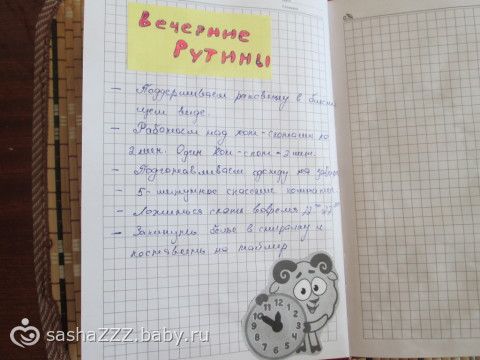 Вечерние
Рутины
- Поддерживаем раковину в блестя
щем виде.
- Работаем над хот-спотами по
2 мин. Один хот-спот = 2 мин.
- Подготавливаем одежду на завтра
- 5-минутное спасение комнаты.
- Ложимся спать вовремя
- Закинуть белье в стиралку и
поставить на таймер
12
1
2
3
4
5
6
7
8
9
10
11
sashaZZZ.baby.ru